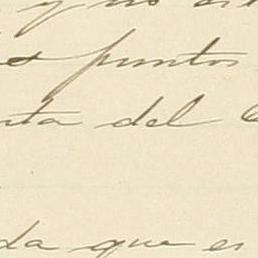 y no
puntos
ta del
da que es